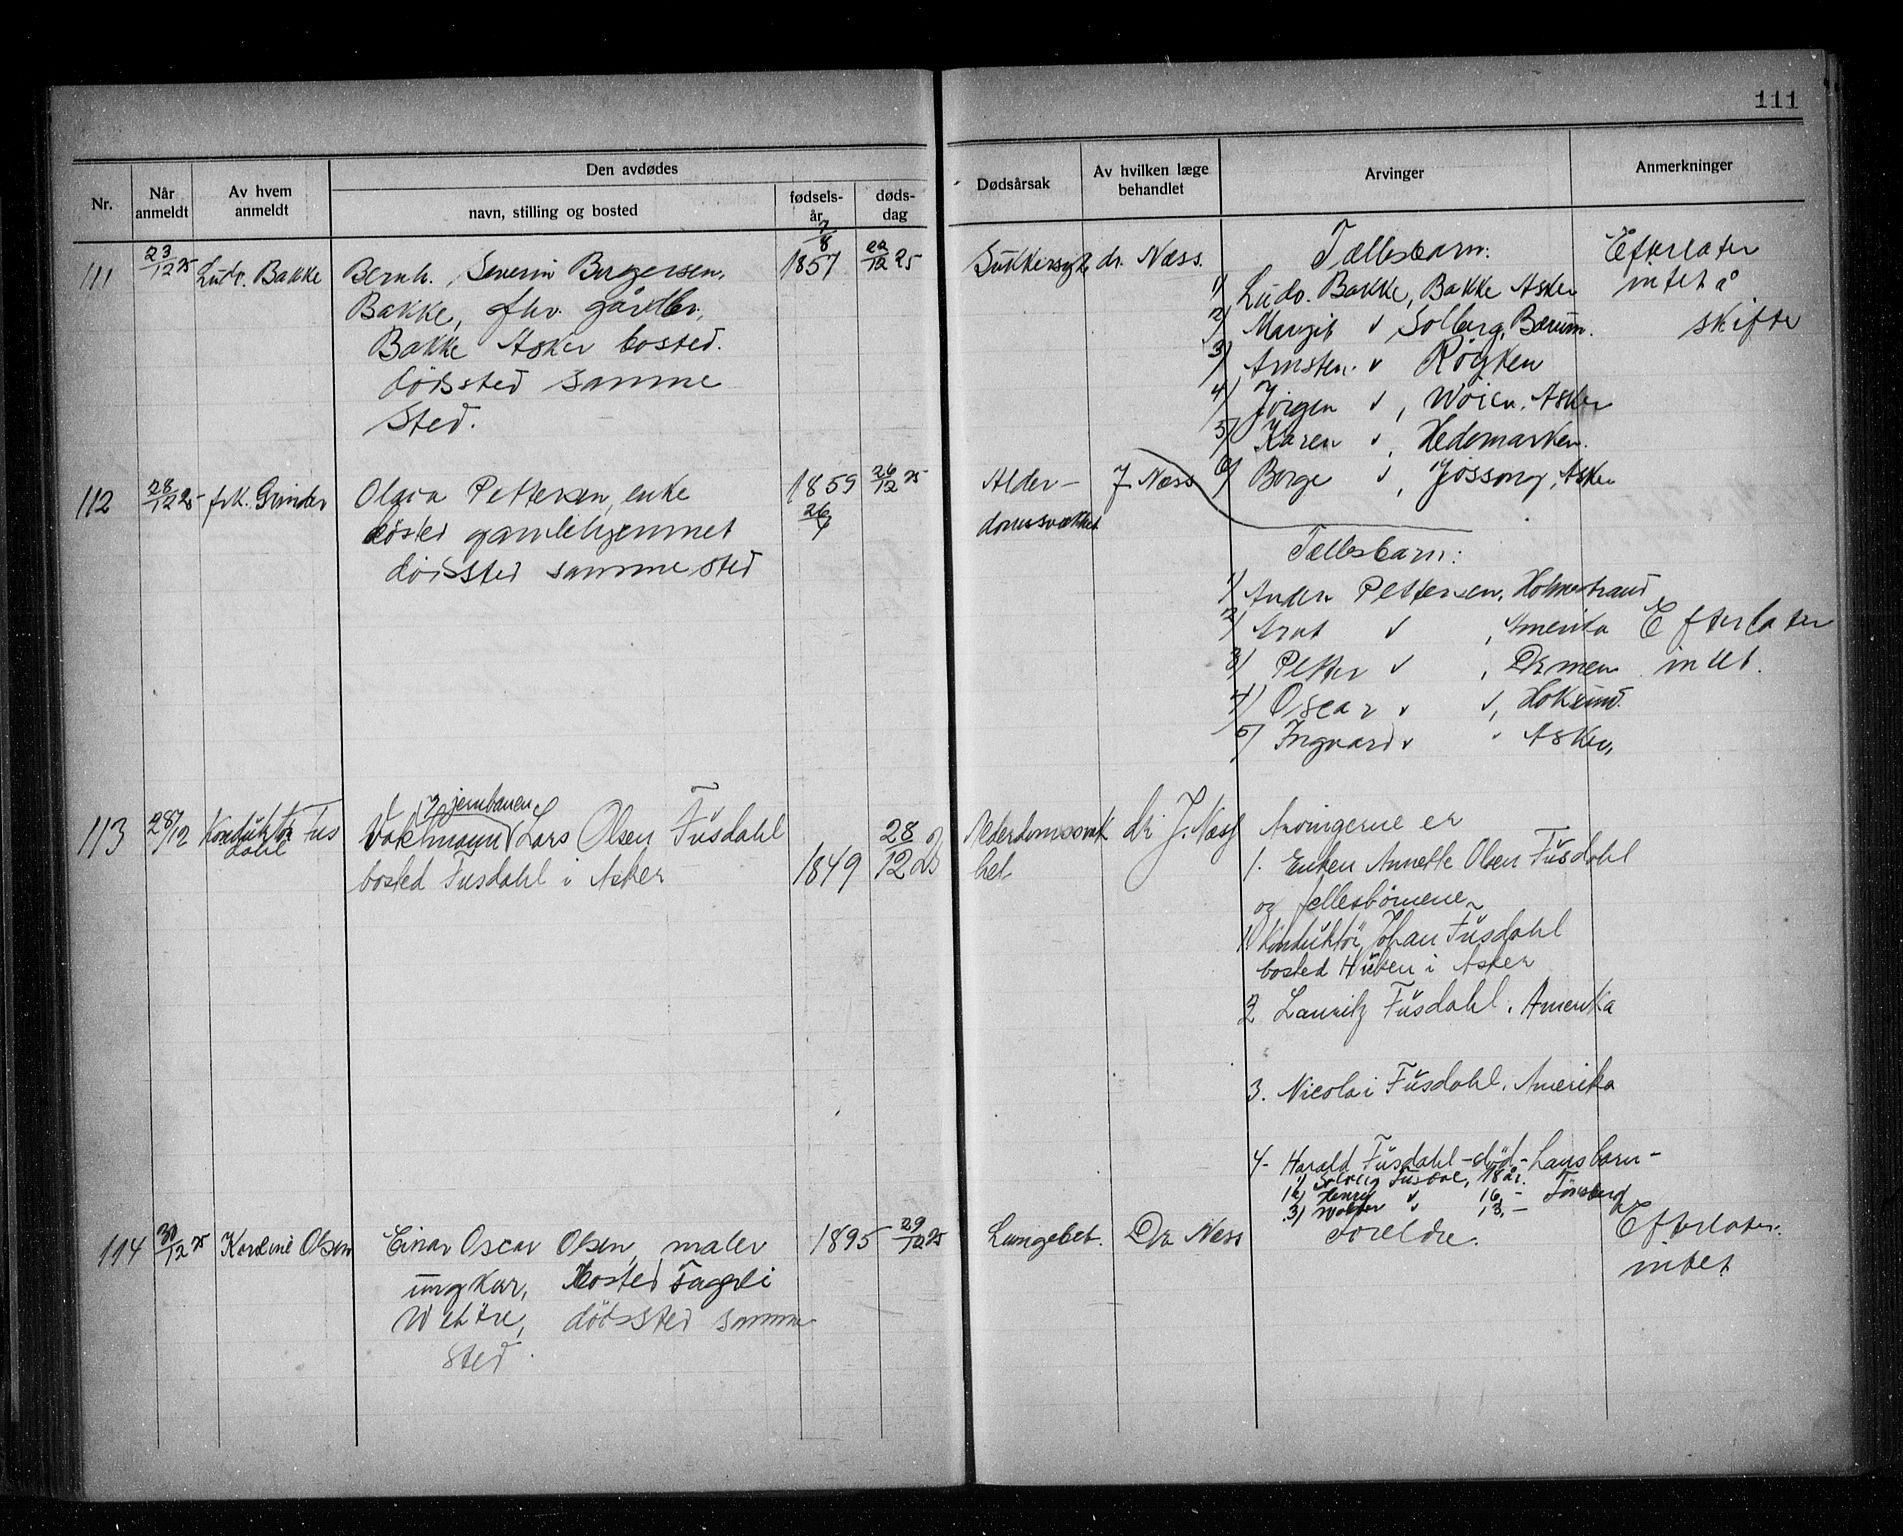 111
Nr.
Når anmeldt
Av hvem anmeldt
Den avdødes
navn, stilling og bosted
fødsels-år
døds-dag
Dødsårsak
Av hvilken læge behandlet
Arvinger
Anmerkninger
111 23/12 25 Ludv. Bakke
Bernh. Severin Borgersen,
Bakke, fhv. gårdbr.,
Bakke Asker bosted.
dødssted samme
sted.
7/8
1857 22/12 25
Sukkersyk dr. Næss.
Fællesbarn:
1) Ludv. Bakke, Bakke Asker
2) Margit v Solberg, Bærum.
3) Arnsten. v Røyken
4) Jörgen v, Wöien, Asker
5) Karen v, Hedemarken.
6) Borge v, Asker
Efterlater
intet å
skifte
112 28/12 25 frk. Grinder
Olava Pettersen, enke
bosted gamlehjemmet
dødssted samme sted
1859 26/12 25
26/
Alder-
domssvakhet
J. Næss
Fællesbarn:
1) Andr. Pettersen, Holmestrand
2) Arnt v, Amerika
3) Petter v, Drmen
4) Oscar v v, Hoksund.
5) Ingvard v " Asker,
Efterlater
intet.
113 28/12 Konduktør Fus
dahl
jernbanen
Vaktmann v Lars Olsen Fusdahl
bosted Fusdahl i Asker
1849 28/12 25
Alderdomssvak
het
dr J. Næss
Arvingerne er
1. Enken Annette Olsen Fusdahl
og fellesbörnene
1) Konduktör Johan Fusdahl
bosted Hücken i Asker
2 Lauritz Fusdahl, Amerika
3. Nicolai Fusdahl, Amerika
4- Harald Fusdahl - död - hans barn -
1) Solveig Fusdal, 18 år.
2) Henry v 16, - Tönsberg
3) Walter v 13, -
114 30/12 25 Kardine Olsen
Einar Oscar Olsen, maler
ungkar, bosted Fagerli
dödssted samme
sted.
1895 29/12 25
Lungebet. Dr Næss
Foreldre.
Efterlater
intet